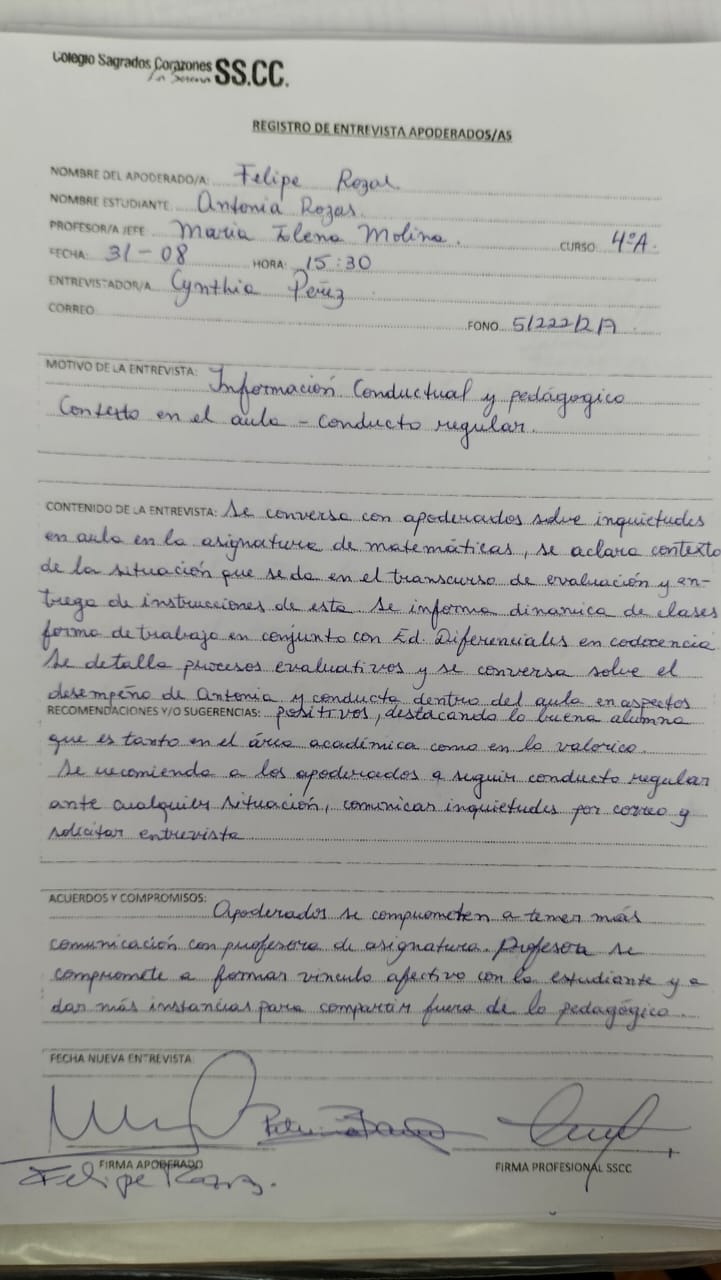 Colegio Sagrados Corazones SS.CC.
La Serena
REGISTRO DE ENTREVISTA APODERADOS/AS
NOMBRE DEL APODERADO/A: Felipe Rozas.
NOMBRE ESTUDIANTE: Antonia Rozas.
PROFESOR/A JEFE: Maria Elena Molina. CURSO: 4°A.
FECHA: 31-08 HORA: 15:30
ENTREVISTADOR/A: Cynthia Pérez
CORREO FONO
MOTIVO DE LA ENTREVISTA: Información Conductual y pedágogico
Contexto en el aula - conducto regular.
CONTENIDO DE LA ENTREVISTA: Se conversa con apoderados sobre inquietudes
en aula en la asignatura de matemáticas, se aclara contexto
de la situación que se da en el transcurso de evaluación y en-
trega de instrucciones de esta. Se informa dinamica de clases
forma de trabajo en conjunto con Ed. Diferenciales en codocencia
Se detalla procesos evaluativos y se conversa sobre el
desempeño de Antonia y conducta dentro del aula en aspectos
RECOMENDACIONES Y/O SUGERENCIAS: positivos, destacando lo buena alumna
que es tanto en el área académica como en lo valorico.
Se recomienda a los apoderados a seguir conducto regular
ante cualquier situación, comunicar inquietudes por correo y
solicitar entrevista
ACUERDOS Y COMPROMISOS: Apoderados se comprometen a tener más
comunicación con profesora de asignatura. Profesora se
compromete a formar vinculo afectivo con la estudiante y a
dar más instancias para compartir fuera de lo pedagógico.
FECHA NUEVA ENTREVISTA
FIRMA APODERADO FIRMA PROFESIONAL SSCC
Felipe Rozas.